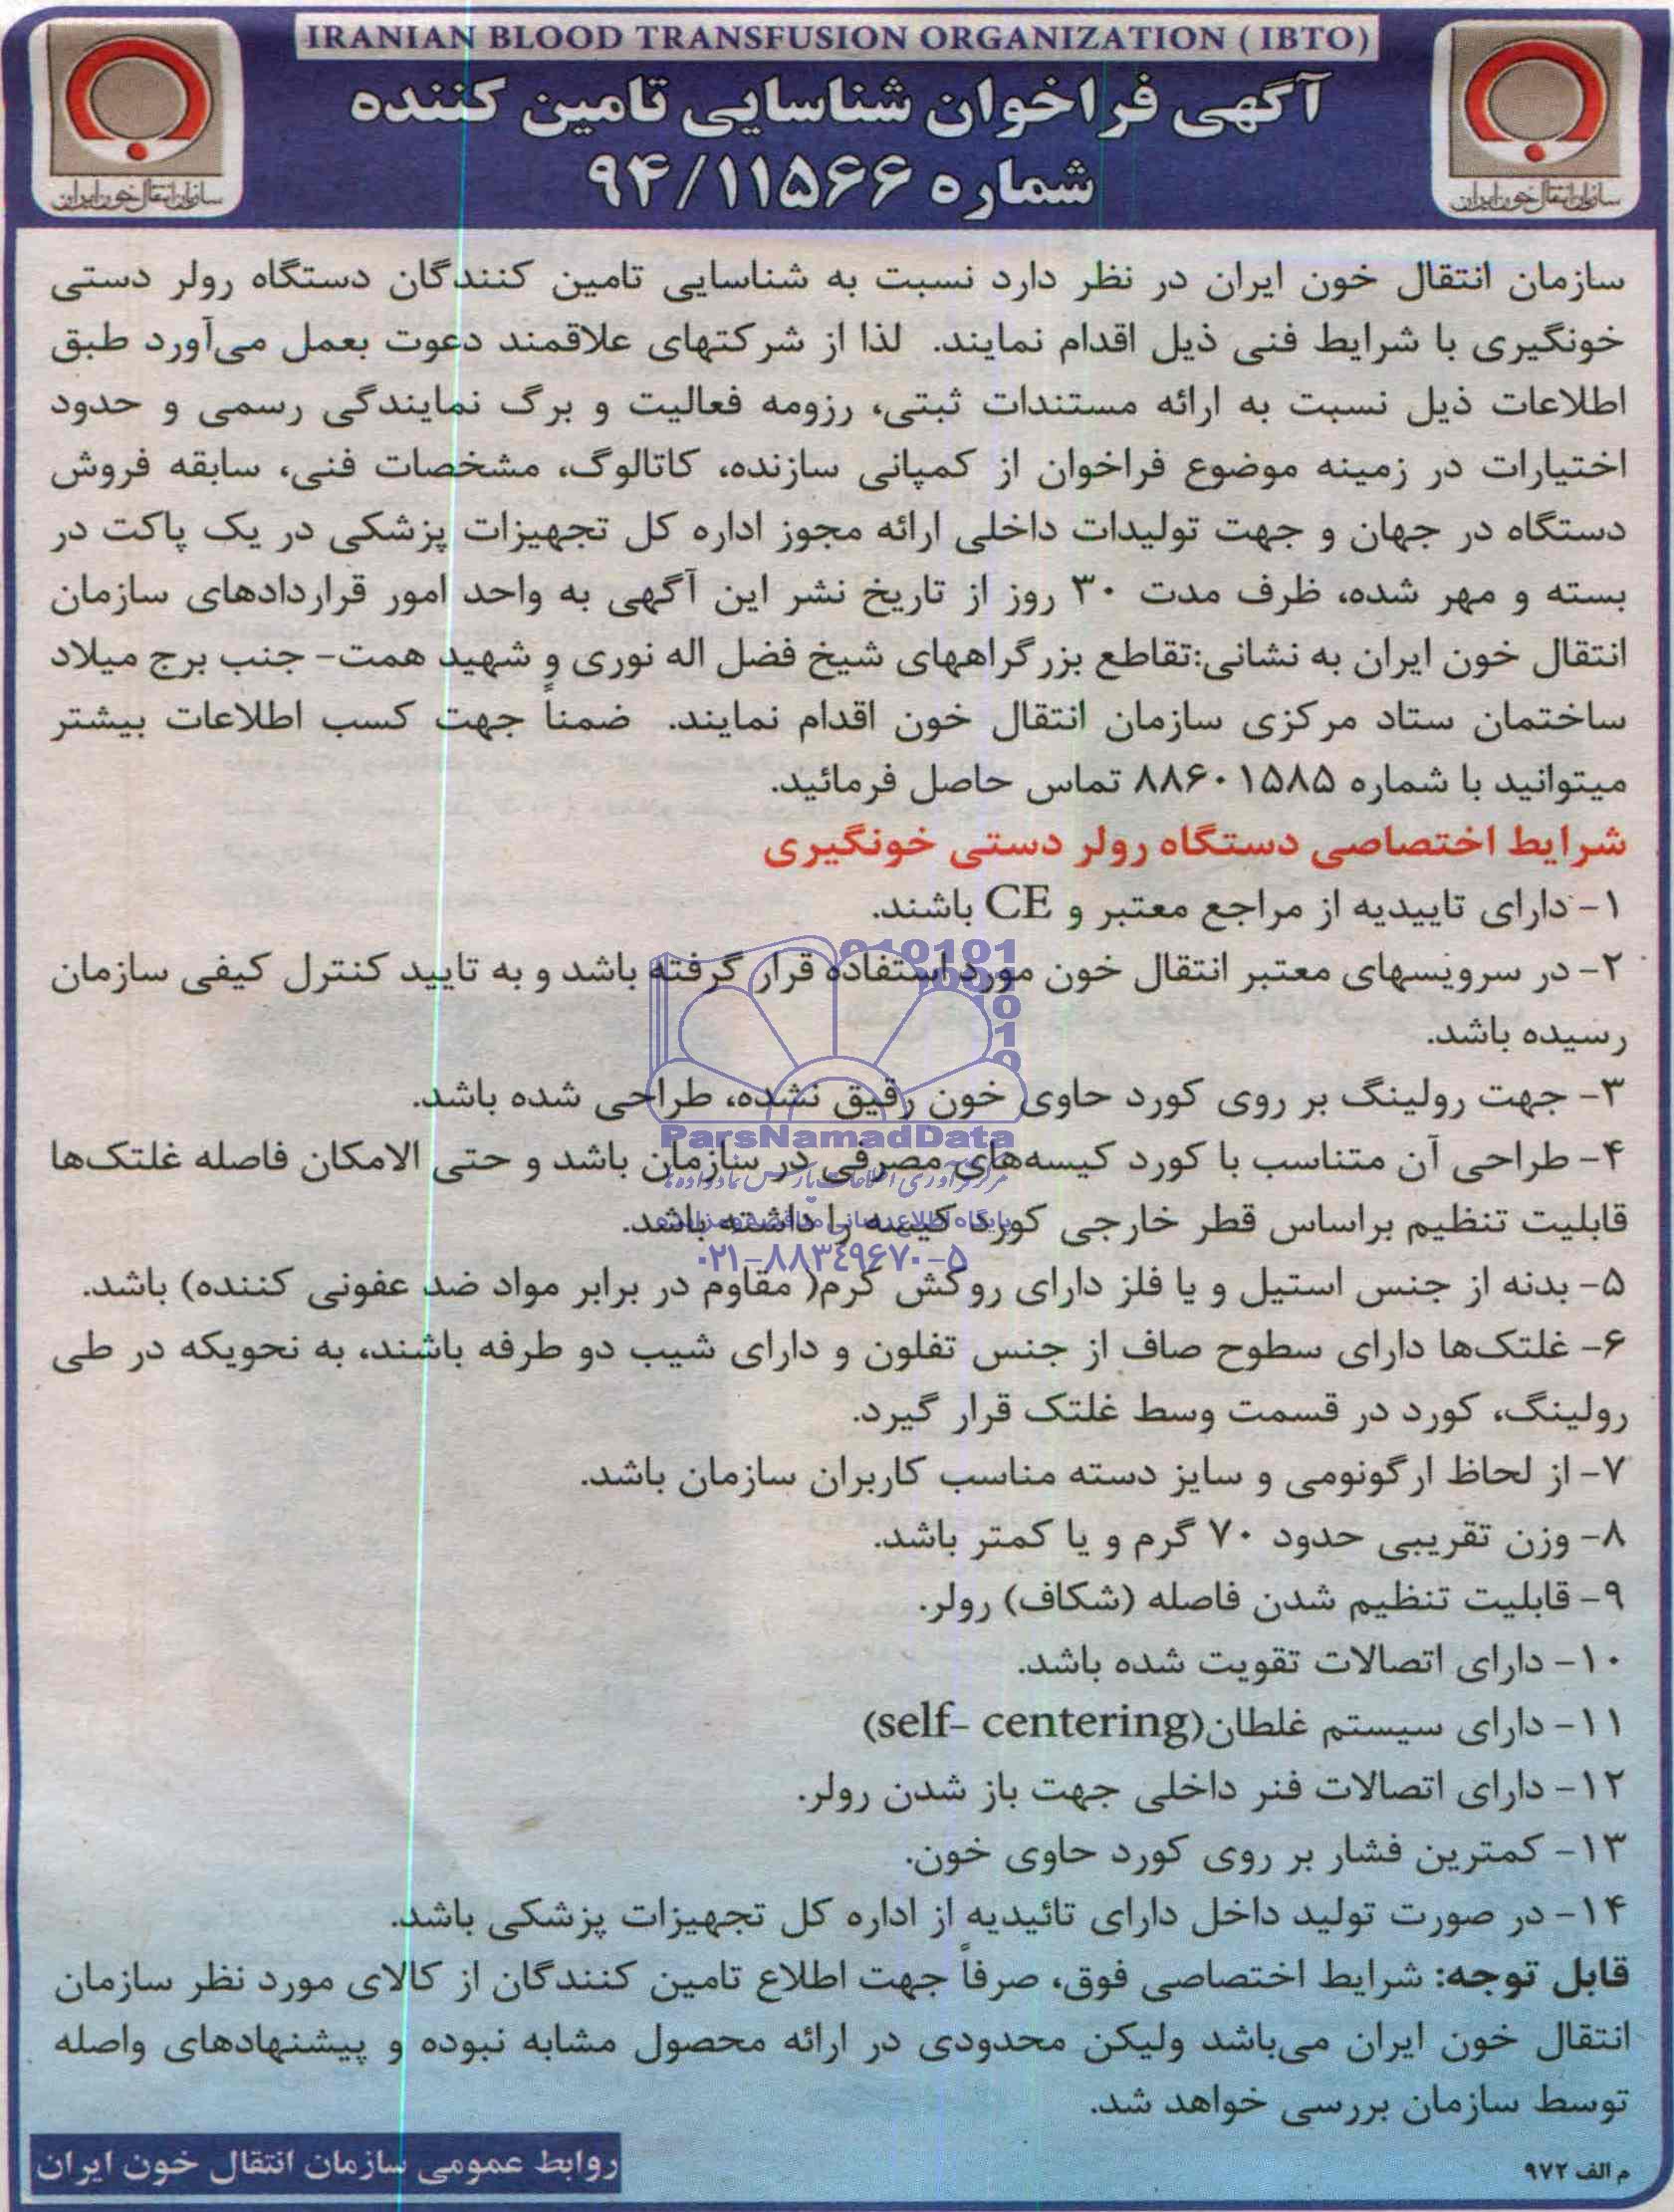 IRANIAN BLOOD TRANSFUSION ORGANIZATION ( IBTO)
آگهی فراخوان شناسایی تامین کننده
شماره ۹۴/۱۱۵۶۶
سازمان انتقال خون ایران
سازمان انتقال خون ایران
سازمان انتقال خون ایران در نظر دارد نسبت به شناسایی تامین کنندگان دستگاه رولر دستی
خونگیری با شرایط فنی ذیل اقدام نمایند. لذا از شرکتهای علاقمند دعوت بعمل می‌آورد طبق
اطلاعات ذیل نسبت به ارائه مستندات ثبتی، رزومه فعالیت و برگ نمایندگی رسمی و حدود
اختیارات در زمینه موضوع فراخوان از کمپانی سازنده، کاتالوگ، مشخصات فنی، سابقه فروش
دستگاه در جهان و جهت تولیدات داخلی ارائه مجوز اداره کل تجهیزات پزشکی در یک پاکت در
بسته و مهر شده، ظرف مدت ۳۰ روز از تاریخ نشر این آگهی به واحد امور قراردادهای سازمان
انتقال خون ایران به نشانی:تقاطع بزرگراههای شیخ فضل اله نوری و شهید همت- جنب برج میلاد
ساختمان ستاد مرکزی سازمان انتقال خون اقدام نمایند. ضمناً جهت کسب اطلاعات بیشتر
میتوانید با شماره ۸۸۶۰۱۵۸۵ تماس حاصل فرمائید.
شرایط اختصاصی دستگاه رولر دستی خونگیری
۱- دارای تاییدیه از مراجع معتبر و CE باشند.
۲- در سرویسهای معتبر انتقال خون مورد استفاده قرار گرفته باشد و به تایید کنترل کیفی سازمان
رسیده باشد.
۳- جهت رولینگ بر روی کورد حاوی خون رقیق نشده، طراحی شده باشد.
ParsNamadData
۴- طراحی آن متناسب با کورد کیسه‌های مصرفی در سازمان باشد و حتی الامکان فاصله غلتک‌ها
قابلیت تنظیم براساس قطر خارجی کورد کیسه را داشته باشد.
۰۲۱-۸۸۳۴۹۶۷۰-۵
۵- بدنه از جنس استیل و یا فلز دارای روکش کرم( مقاوم در برابر مواد ضد عفونی کننده) باشد.
۶- غلتک‌ها دارای سطوح صاف از جنس تفلون و دارای شیب دو طرفه باشند، به نحویکه در طی
رولینگ، کورد در قسمت وسط غلتک قرار گیرد.
۷- از لحاظ ارگونومی و سایز دسته مناسب کاربران سازمان باشد.
۸- وزن تقریبی حدود ۷۰ گرم و یا کمتر باشد.
۹- قابلیت تنظیم شدن فاصله (شکاف) رولر.
۱۰- دارای اتصالات تقویت شده باشد.
۱۱- دارای سیستم غلطان(self- centering)
۱۲- دارای اتصالات فنر داخلی جهت باز شدن رولر.
۱۳- کمترین فشار بر روی کورد حاوی خون.
۱۴- در صورت تولید داخل دارای تائیدیه از اداره کل تجهیزات پزشکی باشد.
قابل توجه: شرایط اختصاصی فوق، صرفاً جهت اطلاع تامین کنندگان از کالای مورد نظر سازمان
انتقال خون ایران می‌باشد ولیکن محدودی در ارائه محصول مشابه نبوده و پیشنهادهای واصله
توسط سازمان بررسی خواهد شد.
م الف ۹۷۲
روابط عمومی سازمان انتقال خون ایران